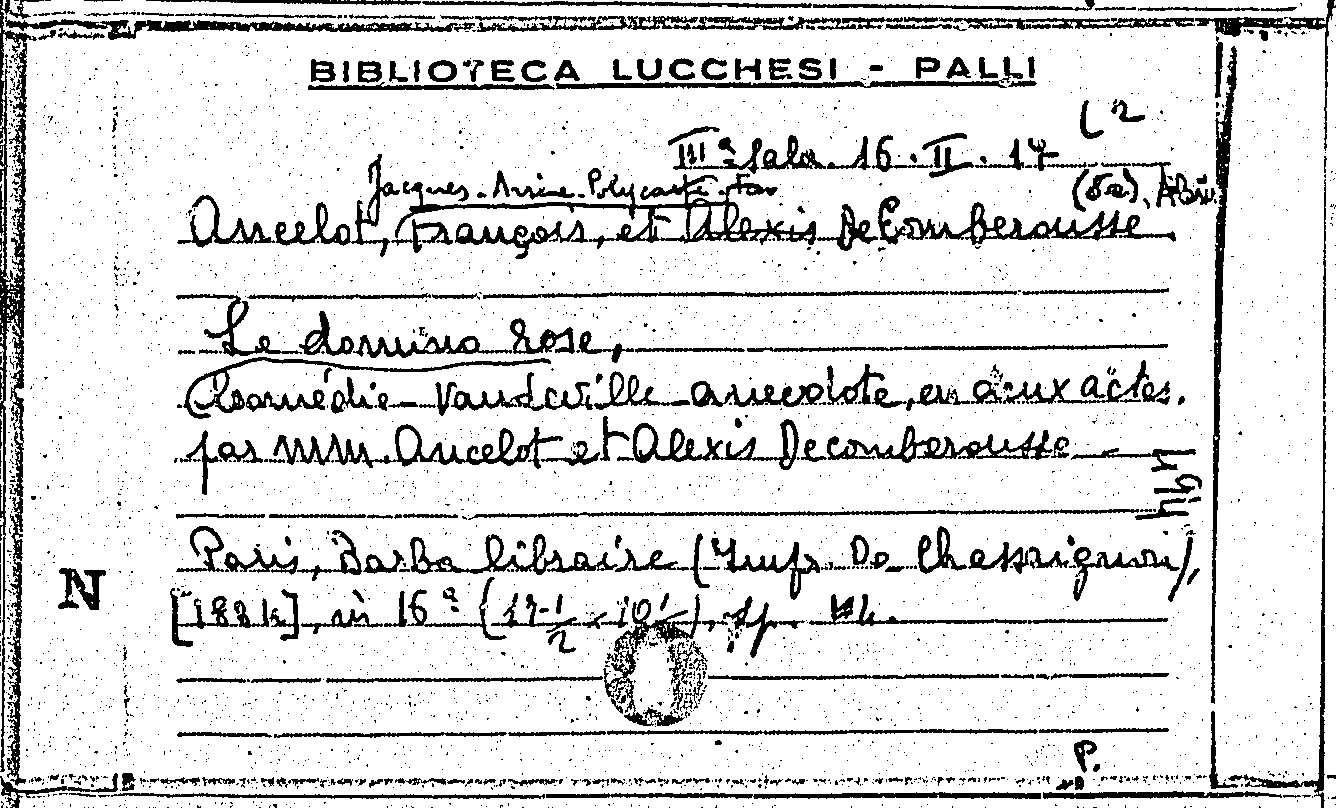 BIBLIOTECA LUCCHESI - PALLI
L 2
IIIª Sala. 16. II. 17
Jacques-Arsène-Polycarpe-Fran
Ancelot, François, et Alexis DeComberousse.
Le domino rose,
Comédie-Vaudeville-anecdote, en deux actes.
par MM. Ancelot et Alexis Decomberousse
Paris, Barba libraire (Impr. De Chassaignon),
in 16º (17 1/2 x 10 1/2),
N
P.